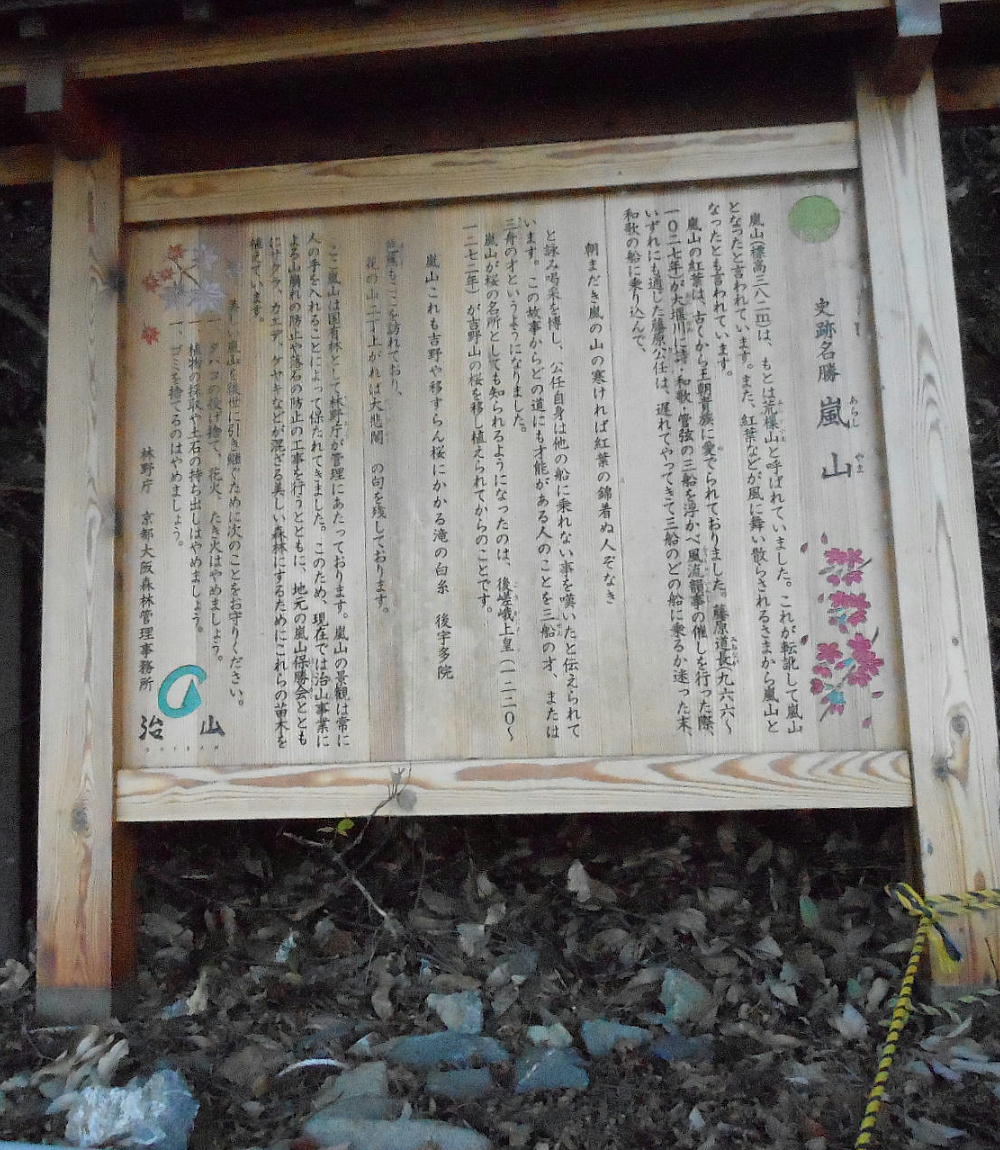 史跡名勝 嵐山
あらし やま
嵐山(標高三八二m)は、もとは荒樔山と呼ばれていました。これが転訛して嵐山
となったと言われています。また、紅葉などが風に舞い散らされるさまから嵐山と
なったとも言われています。
嵐山の紅葉は、古くから王朝貴族に愛でられておりました。藤原道長(九六六〜
一〇二七年)が大堰川に詩・和歌・管弦の三船を浮かべ風流韻事の催しを行った際、
いずれにも通じた藤原公任は、遅れてやってきて三船のどの船に乗るか迷った末、
和歌の船に乗り込んで、
朝まだき嵐の山の寒ければ紅葉の錦着ぬ人ぞなき
と詠み喝采を博し、公任自身は他の船に乗れない事を嘆いたと伝えられて
います。この故事からどの道にも才能がある人のことを三船の才、または
三舟の才というようになりました。
嵐山が桜の名所としても知られるようになったのは、後嵯峨上皇(一二二〇〜
一二七二年)が吉野山の桜を移し植えられてからのことです。
嵐山これも吉野や移すらん桜にかかる滝の白糸 後宇多院
もここを訪れており、
花の山二丁上がれば大悲閣 の句を残しております。
ここ嵐山は国有林として林野庁が管理にあたっております。嵐山の景観は常に
人の手を入れることによって保たれてきました。このため、現在では治山事業に
よる山崩れの防止や落石の防止の工事を行うとともに、地元の嵐山保勝会ととも
にサクラ、カエデ、ケヤキなどが混ざる美しい森林にするためにこれらの苗木を
植えています。
美しい嵐山を後世に引き継ぐために次のことをお守りください。
一、タバコの投げ捨て、花火、たき火はやめましょう。
一、植物の採取や土石の持ち出しはやめましょう。
一、ゴミを捨てるのはやめましょう。
林野庁 京都大阪森林管理事務所
治山